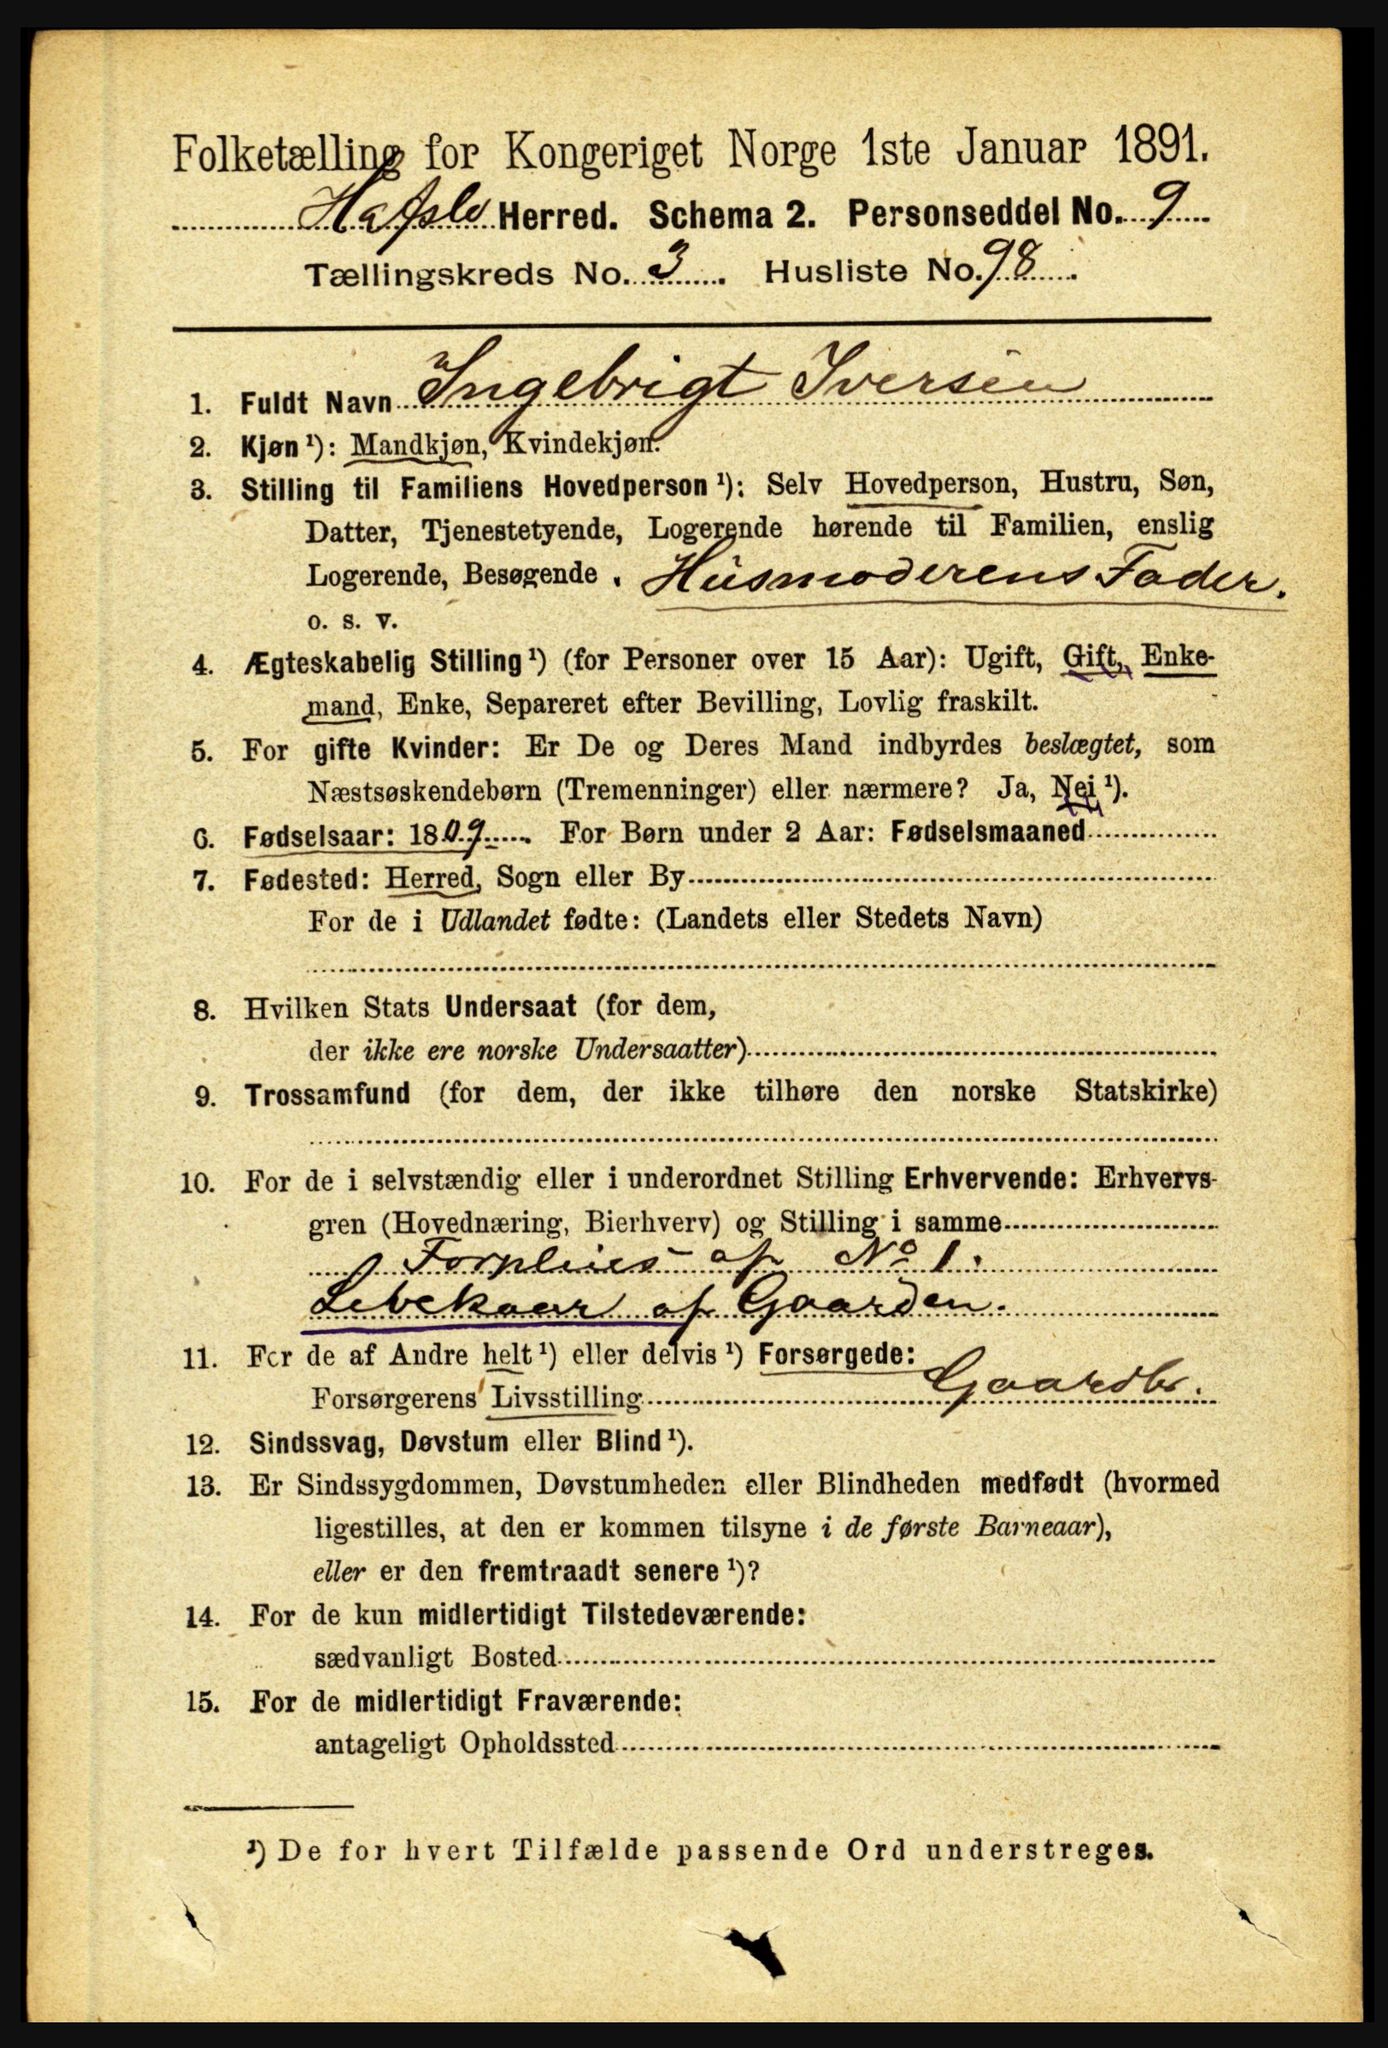 Folketælling for Kongeriget Norge 1ste Januar 1891.
Hafslo Herred. Schema 2. Personseddel No. 9
Tællingskreds No. 3. Husliste No. 98.
1. Fuldt Navn Ingebrigt Iversen
2. Kjøn ¹): Mandkjøn, Kvindekjøn.
3. Stilling til Familiens Hovedperson ¹): Selv Hovedperson, Hustru, Søn,
Datter, Tjenestetyende, Logerende hørende til Familien, enslig
Logerende, Besøgende . Husmoderens Fader.
o. s. v.
4. Ægteskabelig Stilling ¹) (for Personer over 15 Aar): Ugift, Gift, Enke-
mand, Enke, Separeret efter Bevilling, Lovlig fraskilt.
5. For gifte Kvinder: Er De og Deres Mand indbyrdes beslægtet, som
Næstsøskendebørn (Tremenninger) eller nærmere? Ja, Nei ¹).
6. Fødselsaar: 1809. For Børn under 2 Aar: Fødselsmaaned
7. Fødested: Herred, Sogn eller By
For de i Udlandet fødte: (Landets eller Stedets Navn)
8. Hvilken Stats Undersaat (for dem,
der ikke ere norske Undersaatter)
9. Trossamfund (for dem, der ikke tilhøre den norske Statskirke)
10. For de i selvstændig eller i underordnet Stilling Erhvervende: Erhvervs-
gren (Hovednæring, Bierhverv) og Stilling i samme
af No 1.
af Gaarden.
11. For de af Andre helt ¹) eller delvis ¹) Forsørgede:
Forsørgerens Livsstilling Gaardbr.
12. Sindssvag, Døvstum eller Blind ¹).
13. Er Sindssygdommen, Døvstumheden eller Blindheden medfødt (hvormed
ligestilles, at den er kommen tilsyne i de første Barneaar),
eller er den fremtraadt senere ¹)?
14. For de kun midlertidigt Tilstedeværende:
sædvanligt Bosted
15. For de midlertidigt Fraværende:
antageligt Opholdssted
¹) De for hvert Tilfælde passende Ord understreges.